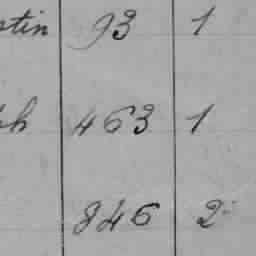 stin 93 1
ph 463 1
846 2